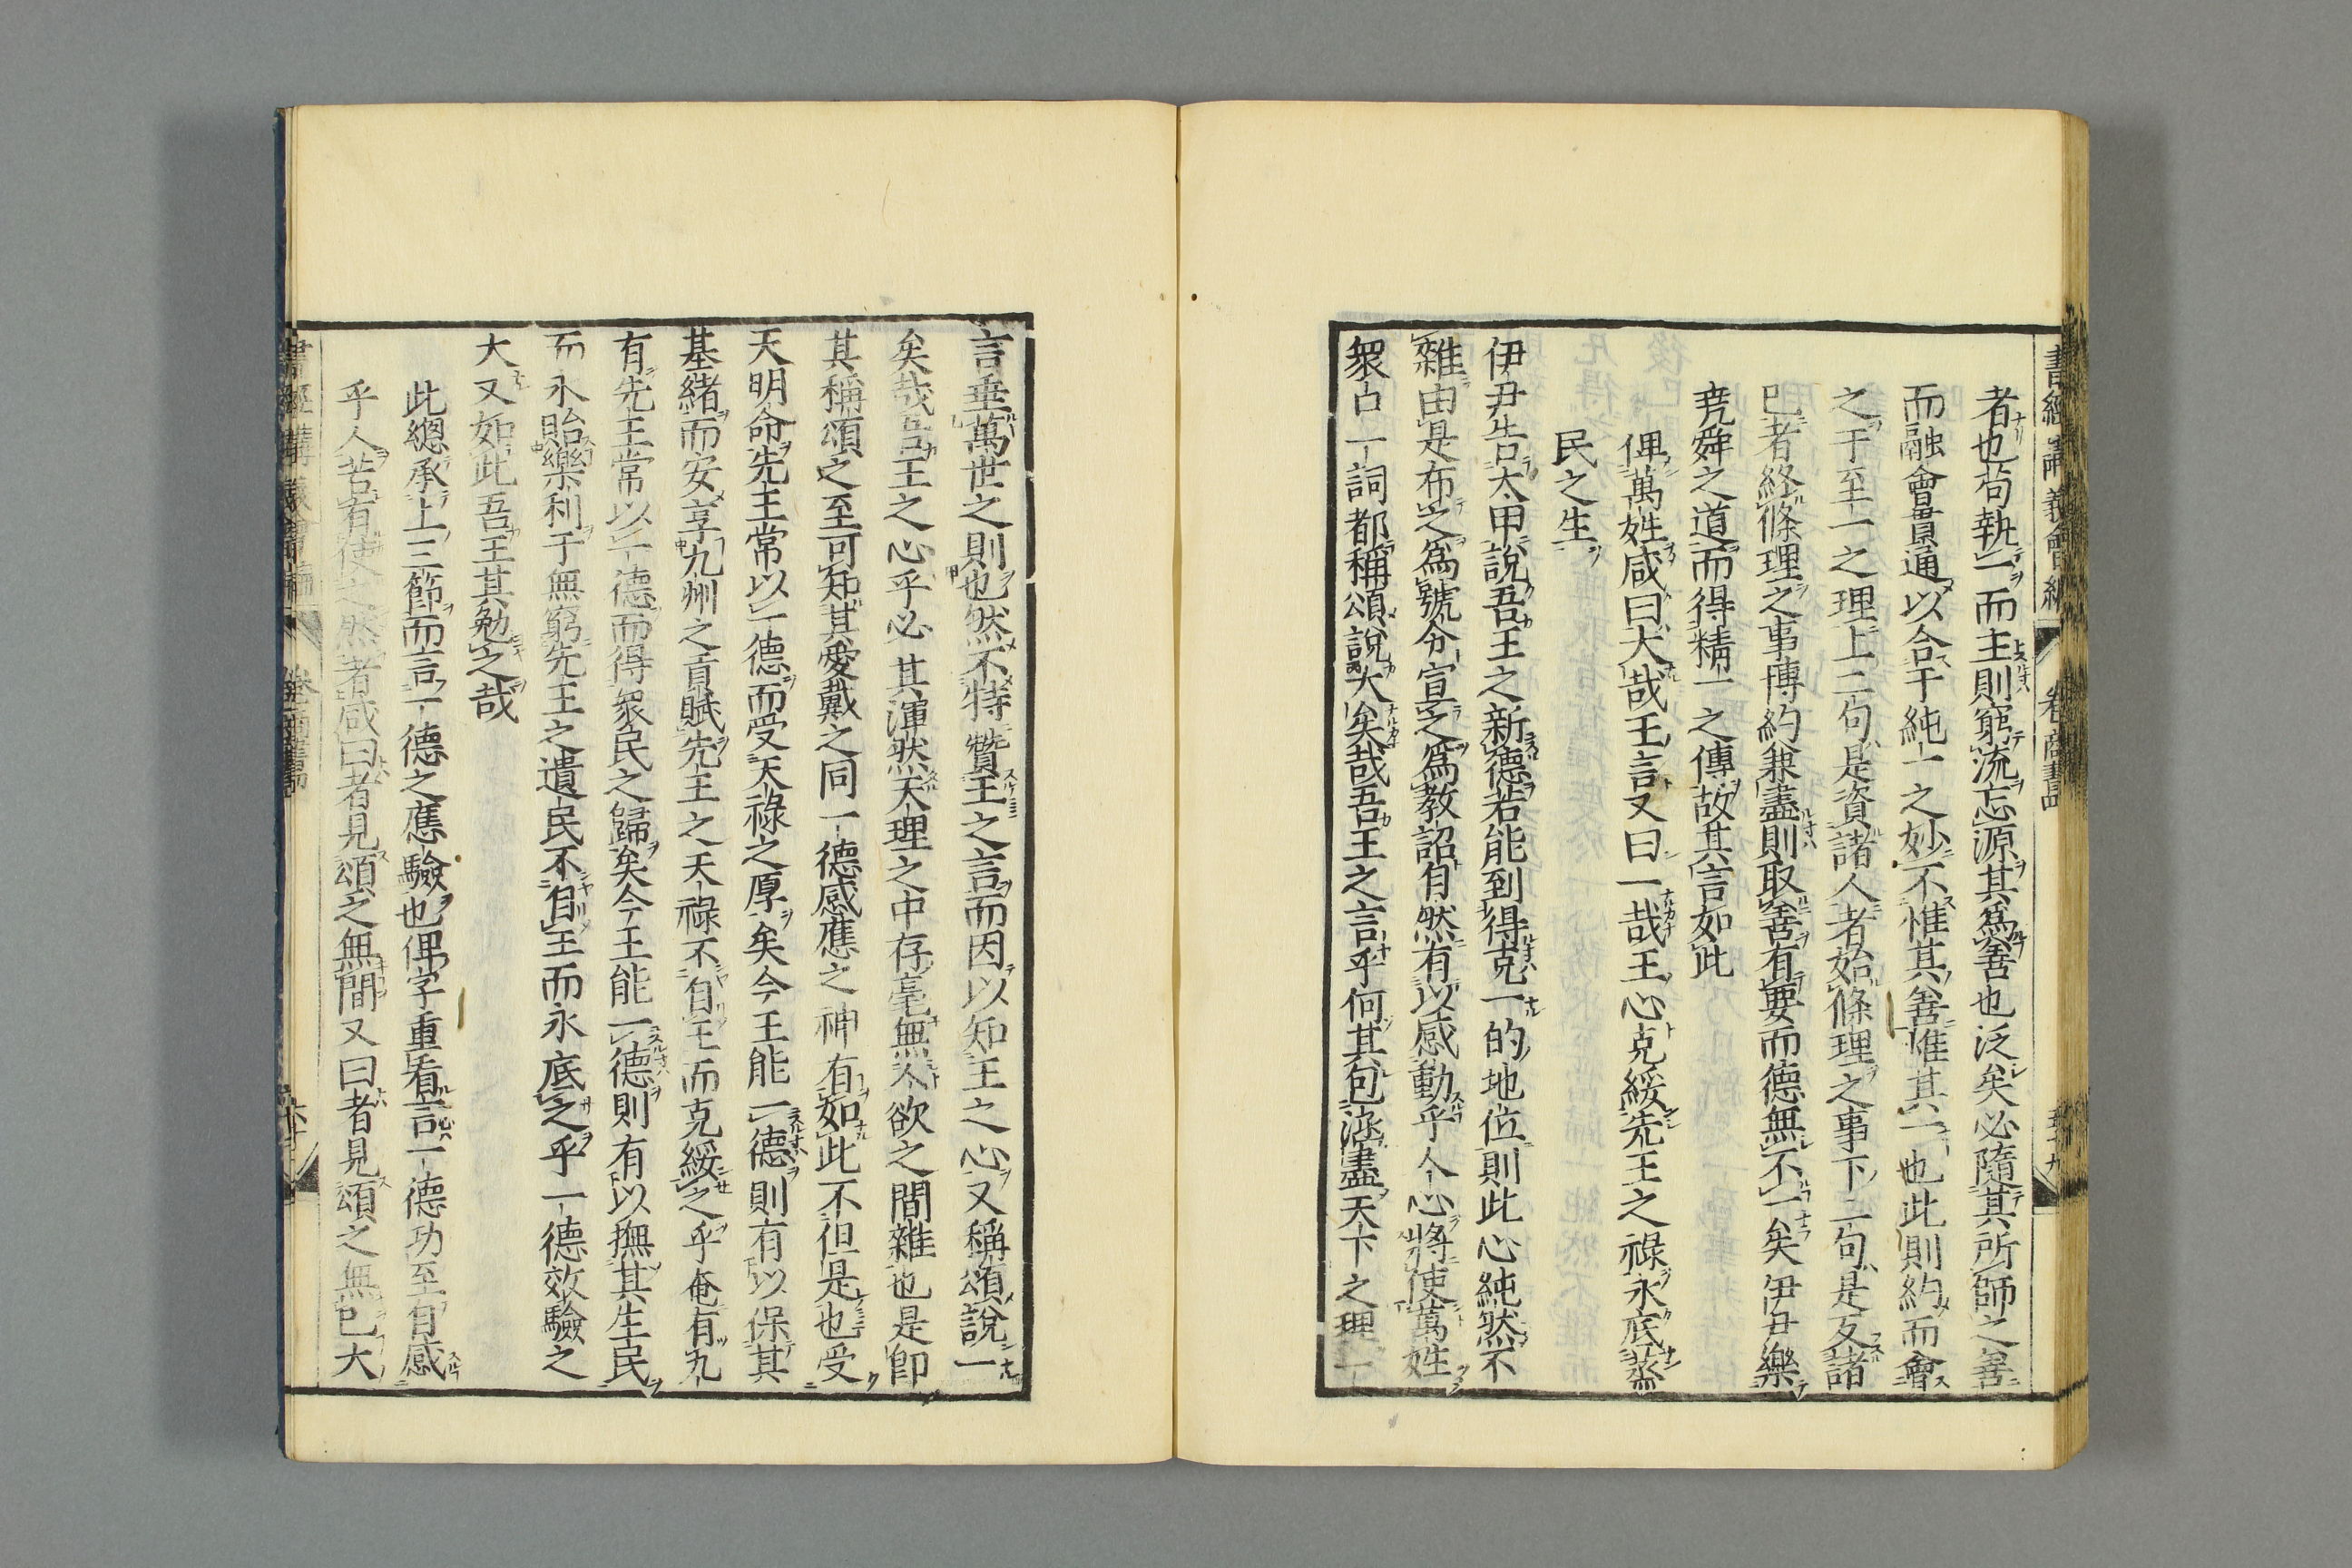 書經講義會編 卷 商書 五十九
者也苟執一而主則窮流忘源其爲善也泛矣必隨其所師之善
而融會貫通以合于純一之妙不惟其善惟其一也此則約而會
之于至一之理上二句是資諸人者始條理之事下二句是反諸
已者終條理之事博約兼盡則取善有要而德無不一矣伊尹樂
堯舜之道而得精一之傳故其言如此
俾萬姓咸曰大哉王言又曰一哉王心克綏先王之祿永底蒸
民之生
伊尹告太甲說吾王之新德若能到得克一的地位則此心純然不
雜由是布之爲號令宣之爲教詔自然有以感動乎人心將使萬姓
衆口一詞都稱頌說大矣哉吾王之言乎何其包涵盡天下之理一
言垂萬世之則也然不特贊王之言而因以知王之心又稱頌說一
矣哉吾王之心乎必其渾然天理之中存毫無人欲之間雜也是卽
其稱頌之至可知其愛戴之同一德感應之神有如此不但是也受
天明命先王常以一德而受天祿之厚矣今王能一德則有以保其
基緒而安享九州之貢賦先王之天祿不自王而克綏之乎奄有九
有先王常以一德而得衆民之歸矣今王能一德則有以撫其生民
而永貽樂利于無窮先王之遺民不自王而永底之乎一德效驗之
大又如此吾王其勉之哉
此總承上三節而言一德之應驗也俾字重看言一德功至自感
乎人若有使之然者咸曰者見頌之無間又曰者見頌之無已大
書經講義會編 卷 商書 六十